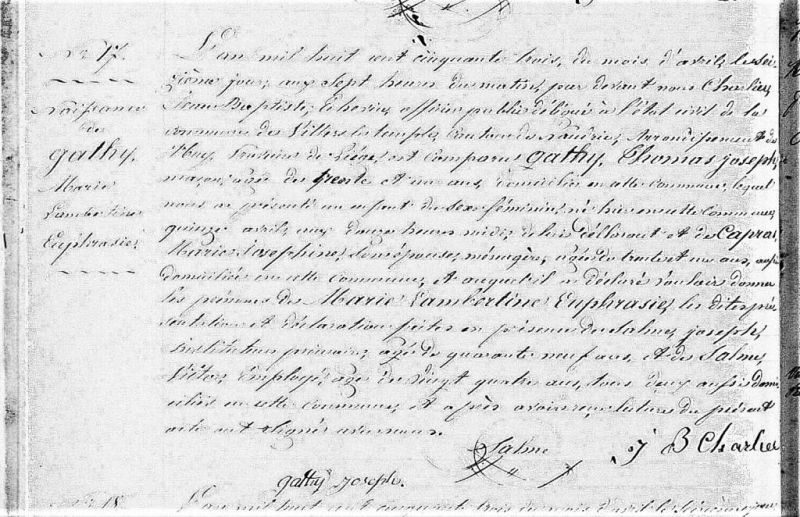 N° 17.
Naissance
de
Gathy,
Marie
Lambertine
Euphrasie,
L'an mil huit cent cinquante trois, du mois d'avril, le sei-
zième jour, aux sept heures du matin, par devant nous Charlier,
Jean Baptiste, échevin, officier public délégué à l'état civil de la
commune de Villers le temple, Canton de Nandrin, Arrondissement de
Huy, Province de Liége, est comparu Gathy, Thomas Joseph,
maçon, agé de trente et un ans, domicilié en cette commune, lequel
nous a présenté un enfant du sexe féminin, né hier en cette commune,
quinze avril, aux douze heures midi, de lui déclarant et de Capraz,
Marie Josephine, son épouse, ménagère, agée de trente et un ans, aussi
domiciliée en cette commune, et auquel il a déclaré vouloir donner
les prénoms de Marie Lambertine Euphrasie, les dites pré-
sentation et déclaration faites en présence de Salme, Joseph,
instituteur primaire, agé de quarante neuf ans, et de Salme,
Victor, employé, agé de vingt quatre ans, tous deux aussi domi-
ciliés en cette commune, et après avoir eu lecture du présent
acte ont signés avec nous.
Salme J B Charlier
gathy joseph.
N° 18.
L'an mil huit cent cinquante trois du mois d'avril le